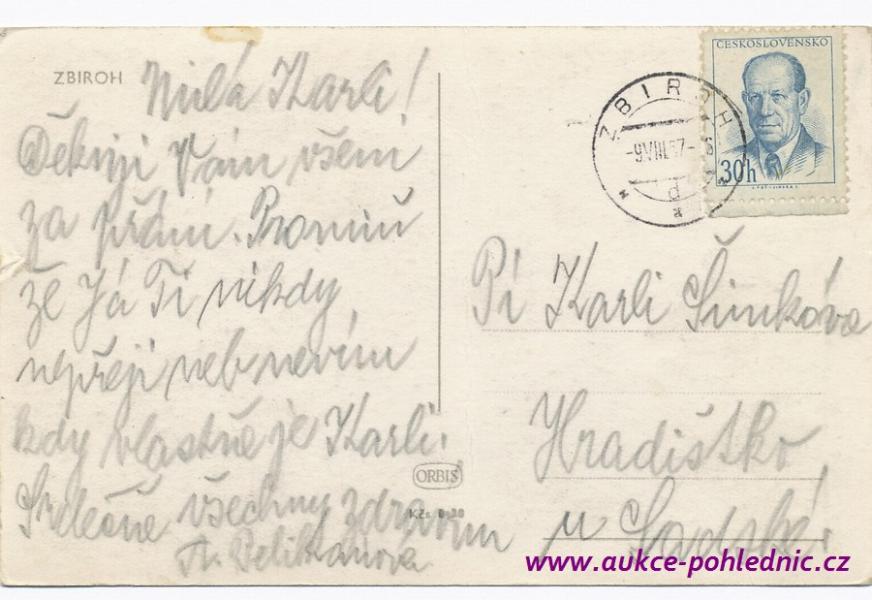 ZBIROH
Milá Karli!
Děkuji Vám všem
za přání. Promiň
že Já Ti nikdy
nepřeji neb nevím
kdy vlastně je Karli.
Srdečně všechny zdravím
Pelikánová
ORBIS
Kčs 0·30
ČESKOSLOVENSKO
30h
ZBIROH
-9.VIII.57-
Pí Karli Šimková
Hradištko
u Sadské.
www.aukce-pohlednic.cz